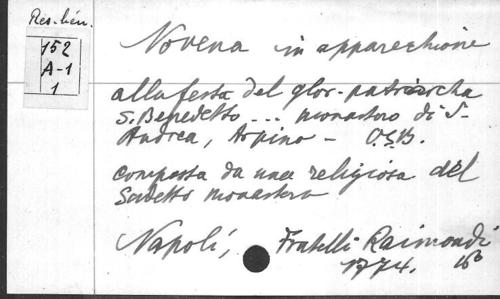 Res. lén.
152
A-1
1
Novena in apparechione
alla festa del glor. patriarcha
S. Benedetto ... monastero di S.
Andrea, Arpino - O.S.B.
composta da una religiosa del
Sudetto monastero
Napoli, Fratelli Raimondi
1774. 16°